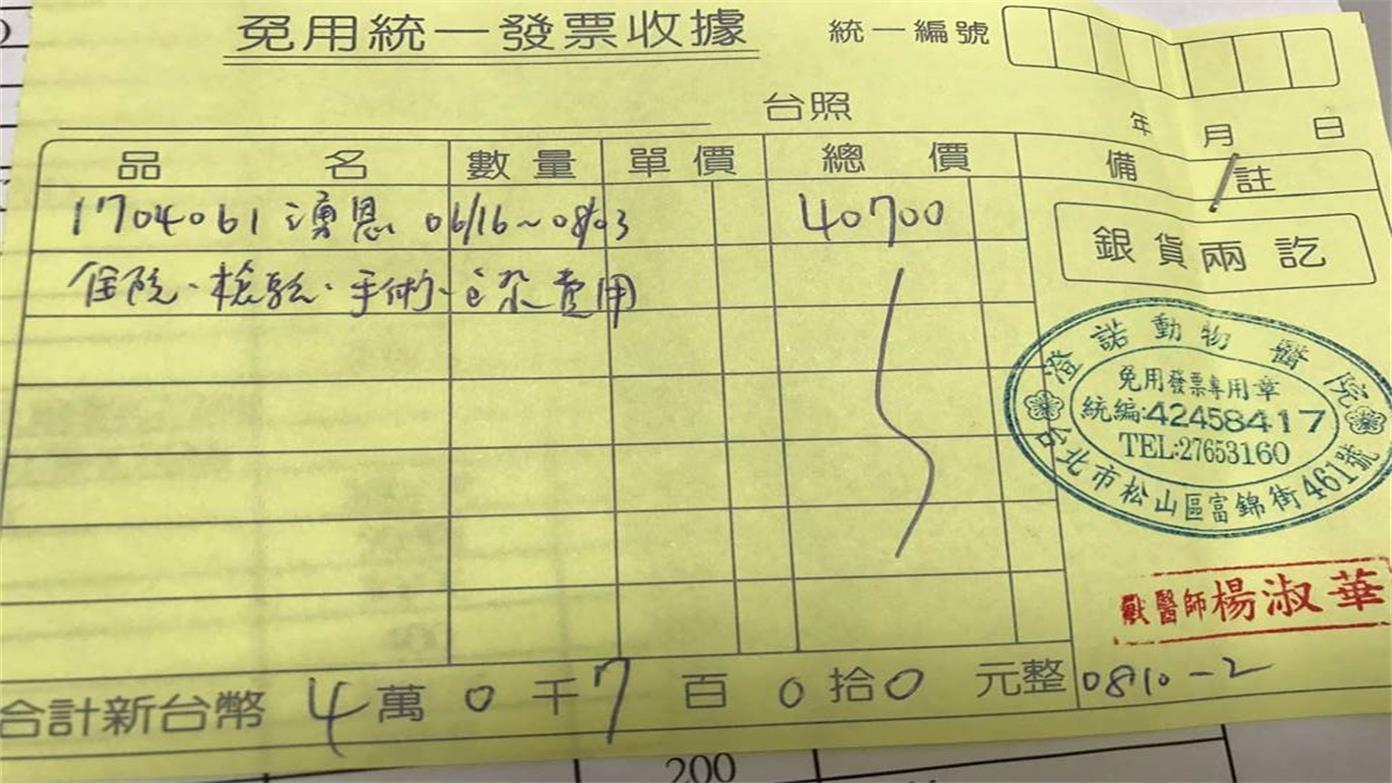 免用統一發票收據
統一編號
台照
年 月 日
品名 數量 單價 總價 備註
1704061 湧恩 06/16~08/03 40700
住院、檢驗、手術、已染費用
銀貨兩訖
澄諾動物醫院
免用發票專用章
統編:42458417
TEL:27653160
台北市松山區富錦街461號
獸醫師楊淑華
合計新台幣 4 萬 0 千 7 百 0 拾 0 元整
0810-2
200